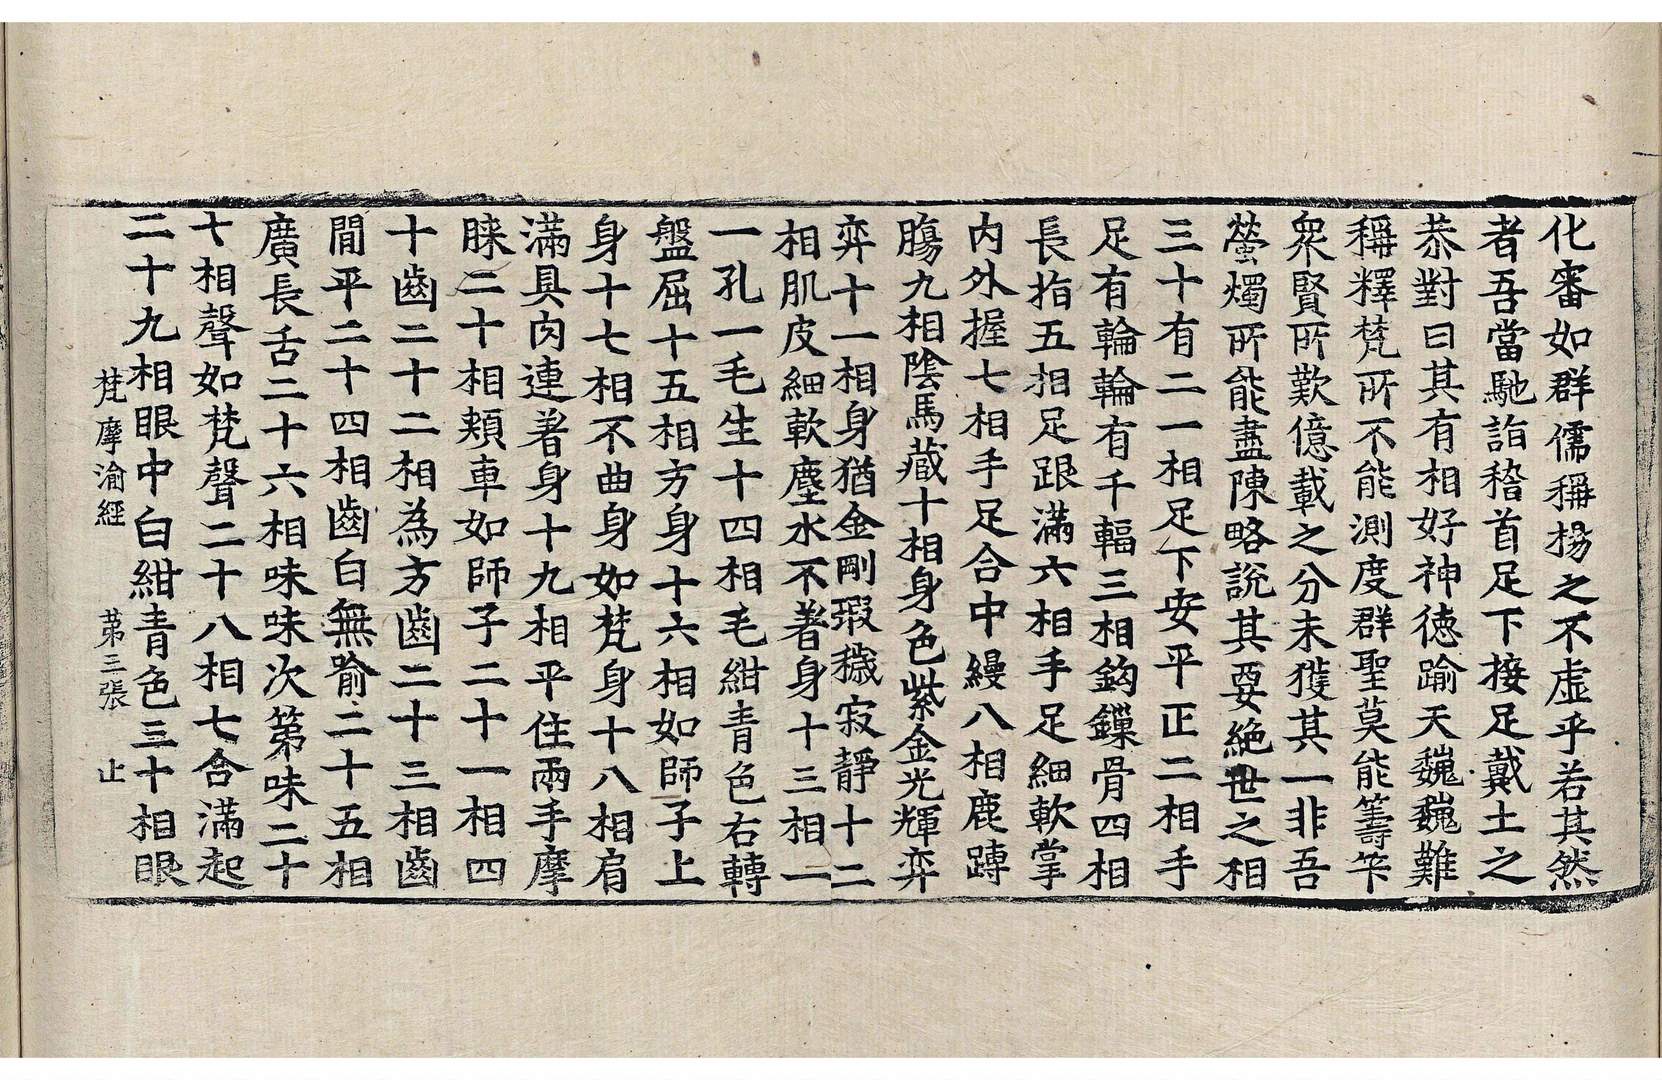 化審如群儒稱揚之不虛乎若其然
者吾當馳詣稽首足下接足戴土之
恭對曰其有相好神德踰天巍巍難
稱釋梵所不能測度群聖莫能籌筭
衆賢所歎億載之分未獲其一非吾
螢燭所能盡陳略說其要絕世之相
三十有二一相足下安平正二相手
足有輪輪有千輻三相鈎鏁骨四相
長指五相足跟滿六相手足細軟掌
内外握七相手足合中縵八相鹿䏝
膓九相陰馬藏十相身色紫金光輝弈
弈十一相身猶金剛瑕穢寂靜十二
相肌皮細軟塵水不著身十三相一
一孔一毛生十四相毛紺青色右轉
盤屈十五相方身十六相如師子上
身十七相不曲身如梵身十八相肩
滿具肉連著身十九相平住兩手摩
䐆二十相頰車如師子二十一相四
十齒二十二相為方齒二十三相齒
間平二十四相齒白無喻二十五相
廣長舌二十六相味味次第味二十
七相聲如梵聲二十八相七合滿起
二十九相眼中白紺青色三十相眼
梵摩渝經 第三張 止